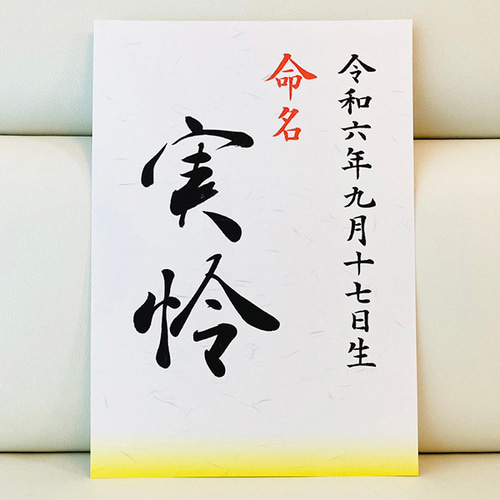 令和六年九月十七日生
命名
実怜